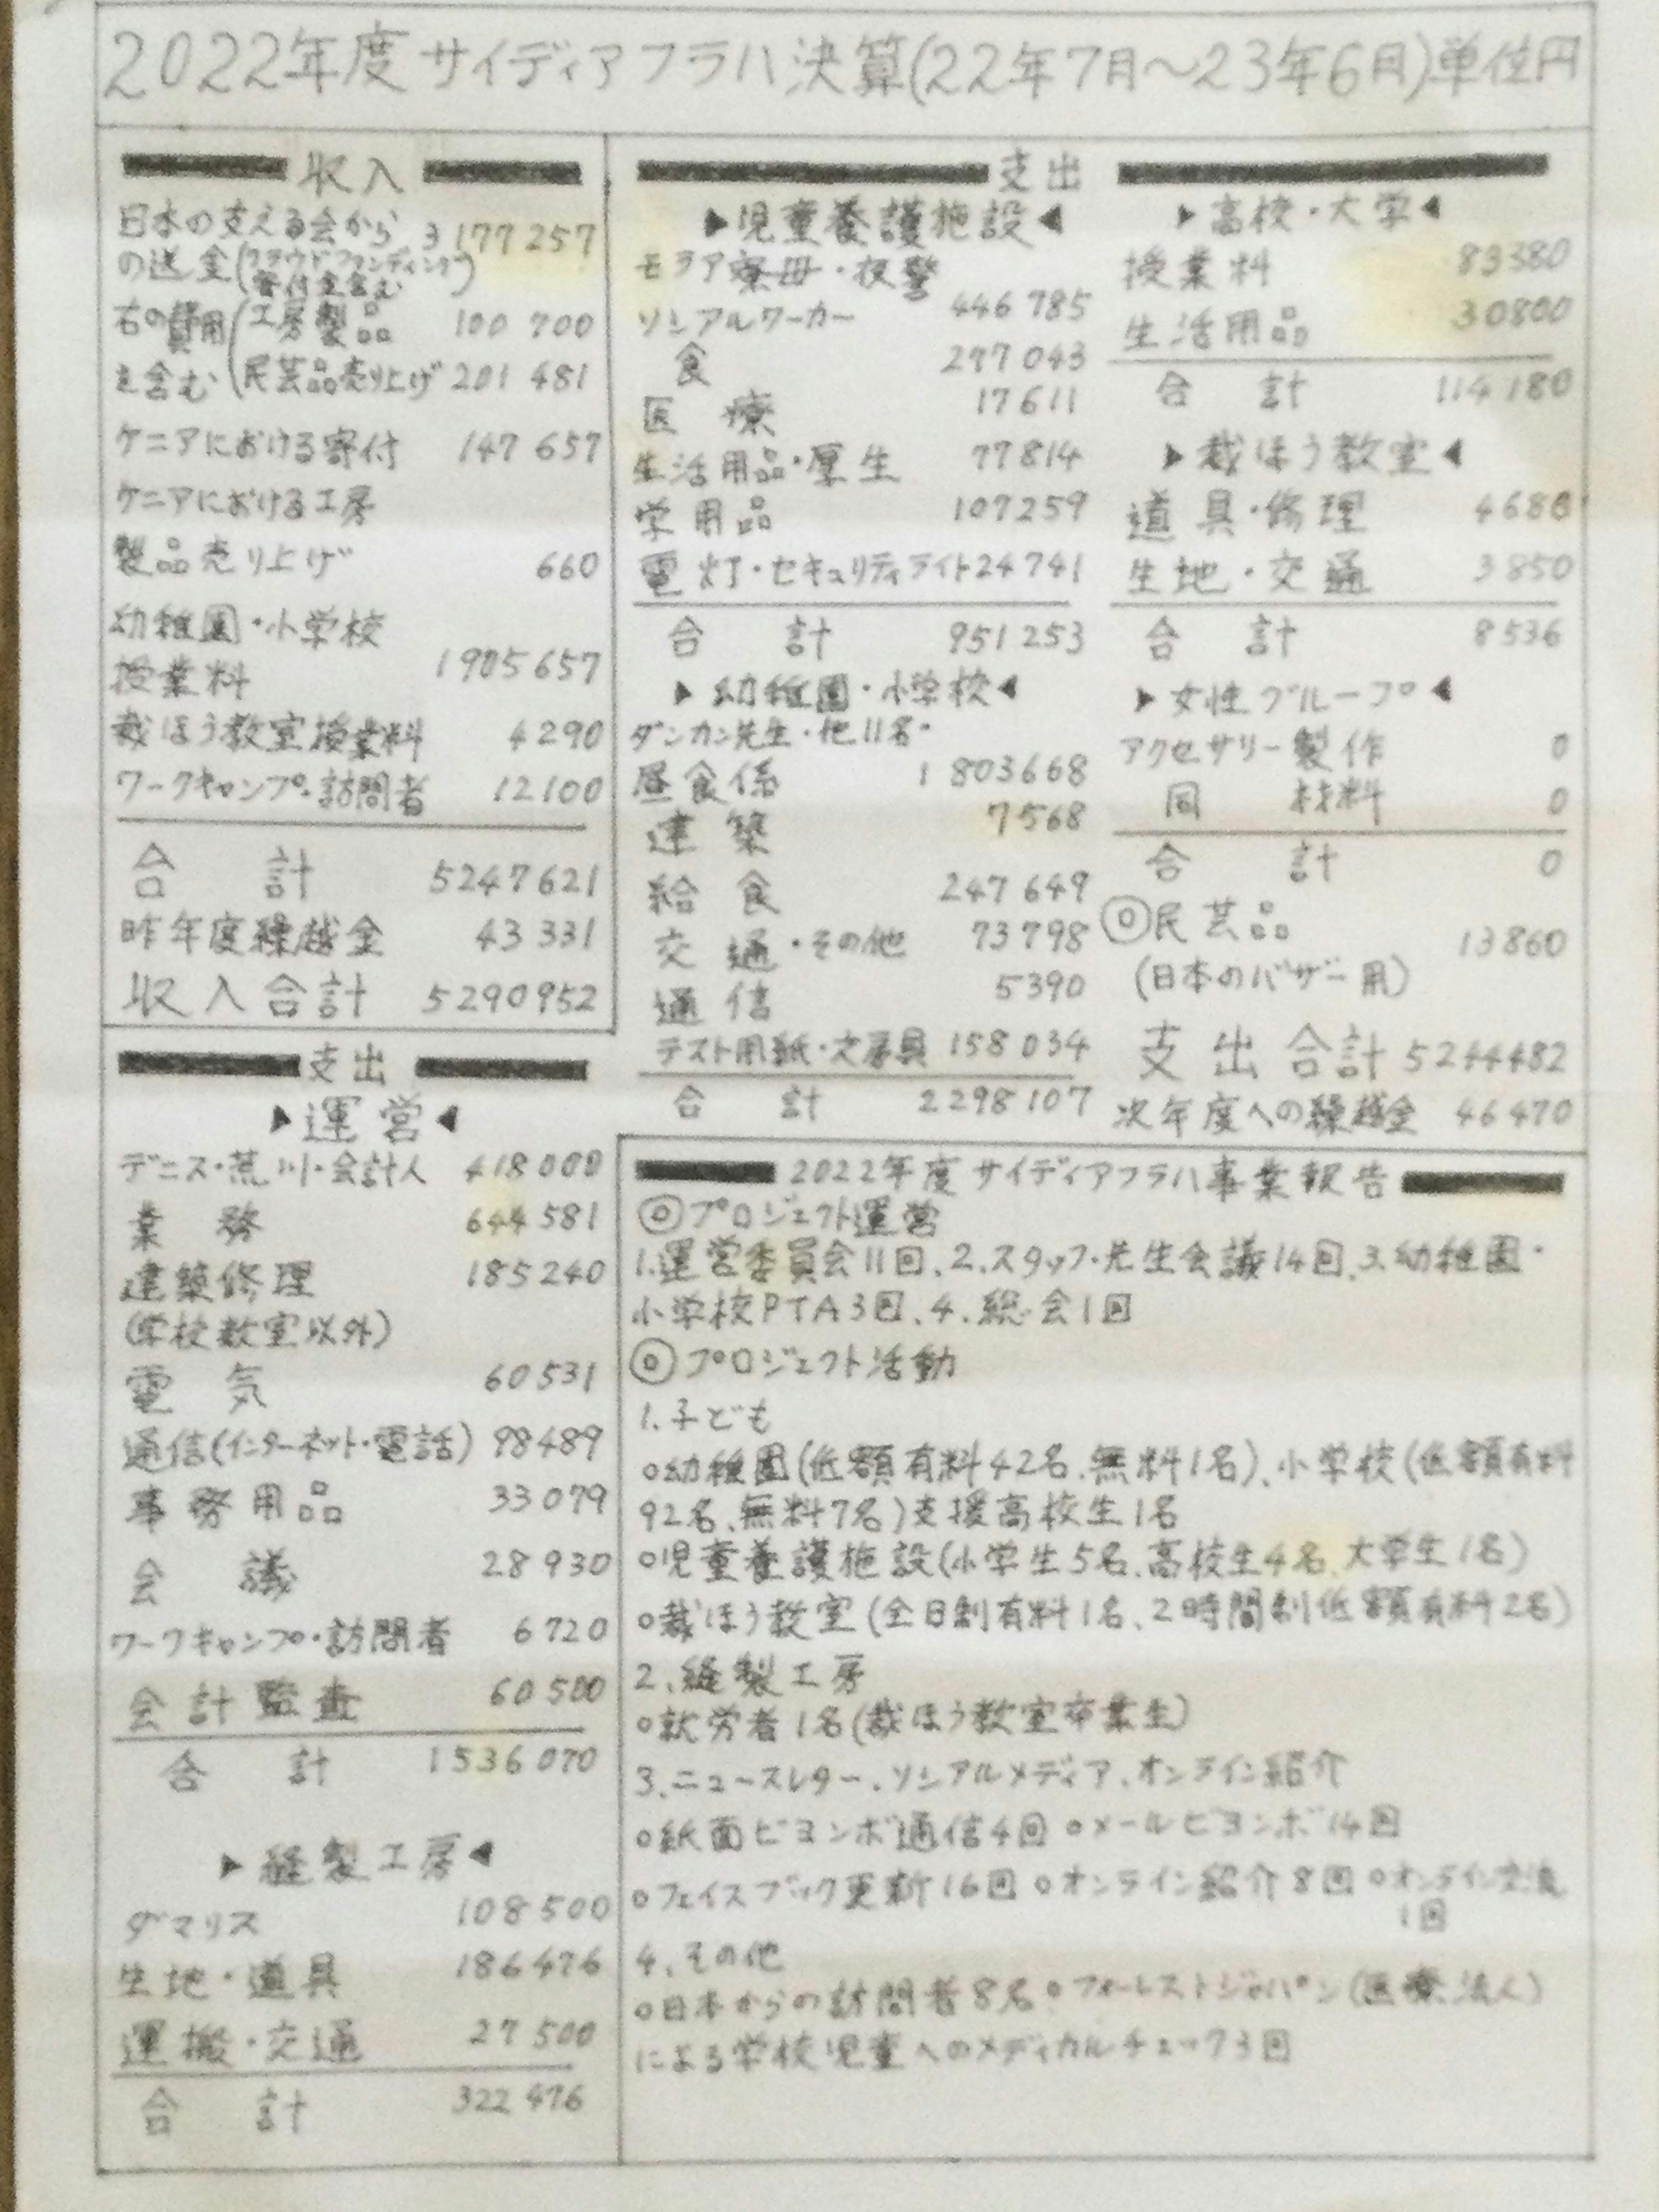 2022年度サイディアフラハ決算(22年7月〜23年6月)単位円
収入
日本の支える会から
の送金(クラウドファンディング 寄付金含む) 3177257
右の費用(工房製品 100 700
を含む(民芸品売り上げ 201 481
ケニアにおける寄付 147 657
ケニアにおける工房
製品売り上げ 660
幼稚園・小学校
授業料 1905657
裁ほう教室授業料 4290
ワークキャンプ・訪問者 12100
合計 5247621
昨年度繰越金 43331
収入合計 5290952
支出
▶運営◀
デニス・荒川・会計人 418000
業務 644581
建築修理 185240
(学校教室以外)
電気 60531
通信(インターネット・電話) 98489
事務用品 33079
会議 28930
ワークキャンプ・訪問者 6720
会計監査 60500
合計 1536070
▶縫製工房◀
ダマリス 108500
生地・道具 186476
運搬・交通 27500
合計 322476
支出
▶児童養護施設◀
モラア寮母・夜警
ソシアルワーカー 446785
食 277043
医療 17611
生活用品・厚生 77814
学用品 107259
電灯・セキュリティライト 24741
合計 951253
▶幼稚園・小学校◀
ダンカン先生・他11名・
昼食係 1803668
建築 7568
給食 247649
交通・その他 73798
通信 5390
テスト用紙・文房具 158034
合計 2298107
▶高校・大学◀
授業料 83380
生活用品 30800
合計 114180
▶裁ほう教室◀
道具・修理 4686
生地・交通 3850
合計 8536
▶女性グループ◀
アクセサリー製作 0
同材料 0
合計 0
◎民芸品 13860
(日本のバザー用)
支出合計 5244482
次年度への繰越金 46470
2022年度サイディアフラハ事業報告
◎プロジェクト運営
1.運営委員会11回、2.スタッフ・先生会議14回、3.幼稚園・
小学校PTA3回、4.総会1回
◎プロジェクト活動
1.子ども
○幼稚園(低額有料42名、無料1名)、小学校(低額有料
92名、無料7名)支援高校生1名
○児童養護施設(小学生5名、高校生4名、大学生1名)
○裁ほう教室(全日制有料1名、2時間制低額有料2名)
2.縫製工房
○就労者1名(裁ほう教室卒業生)
3.ニュースレター、ソシアルメディア、オンライン紹介
○紙面ビヨンボ通信4回 ○メールビヨンボ14回
○フェイスブック更新16回 ○オンライン紹介8回 ○オンライン交流
1回
4.その他
○日本からの訪問者8名 ○フォーレストジャパン(医療法人)
による学校児童へのメディカルチェック3回